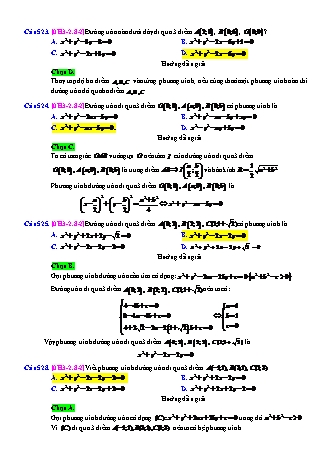 Câu 523. [0H3-2.8-2] Đường tròn nào dưới đây đi qua 3 điểm A(2;0), B(0;6), O(0;0)?
A. x²+y²−3y−8=0. B. x²+y²−2x−6y+1=0.
C. x²+y²−2x+3y=0. D. x²+y²−2x−6y=0.
Hướng dẫn giải
Chọn D.
Thay tọa độ ba điểm A, B, C vào từng phương trình, nếu cùng thoả mãn phương trình nào thì đường tròn đó qua ba điểm A, B, C
Câu 524. [0H3-2.8-2] Đường tròn đi qua 3 điểm O(0;0), A(a;0), B(0;b) có phương trình là
A. x²+y²−2ax−by=0. B. x²+y²−ax−by+xy=0.
C. x²+y²−ax−by=0. D. x²−y²−ay+by=0.
Hướng dẫn giải
Chọn C.
Ta có tam giác OAB vuông tại O nên tâm I của đường tròn đi qua 3 điểm
O(0;0), A(a;0), B(0;b) là trung điểm AB ⇒ I(a/2;b/2) và bán kính R=1/2√(a²+b²)
Phương trình đường tròn đi qua 3 điểm O(0;0), A(a;0), B(0;b) là
(x−a/2)²+(y−b/2)²=(a²+b²)/4 ⇔ x²+y²−ax−by=0
Câu 525. [0H3-2.8-2] Đường tròn đi qua 3 điểm A(0;2), B(2;2), C(1;1+√2) có phương trình là
A. x²+y²+2x+2y−√2=0 B. x²+y²−2x−2y=0.
C. x²+y²−2x−2y−2=0. D. x²+y²+2x−2y+√2=0
Hướng dẫn giải
Chọn B.
Gọi phương trình đường tròn cần tìm có dạng: x²+y²−2ax−2by+c=0 (a²+b²−c>0)
Đường tròn đi qua 3 điểm A(0;2), B(2;2), C(1;1+√2) nên ta có:
4−4b+c=0 a=1
8−4a−4b+c=0 ⇔ b=1
4+2√2−2a−2(1+√2)b+c=0 c=0
Vậy phương trình đường tròn đi qua 3 điểm A(0;2), B(2;2), C(1;1+√2) là
x²+y²−2x−2y=0
Câu 528. [0H3-2.8-2] Viết phương trình đường tròn đi qua 3 điểm A(−1;1), B(3;1), C(1;3)
A. x²+y²−2x−2y−2=0. B. x²+y²+2x−2y=0.
C. x²+y²−2x−2y+2=0. D. x²+y²+2x+2y−2=0
Hướng dẫn giải
Chọn A.
Gọi phương trình đường tròn có dạng (C): x²+y²+2ax+2by+c=0 trong đó a²+b²−c>0
Vì (C) đi qua 3 điểm A(−1;1), B(3;1), C(1;3) nên ta có hệ phương trình